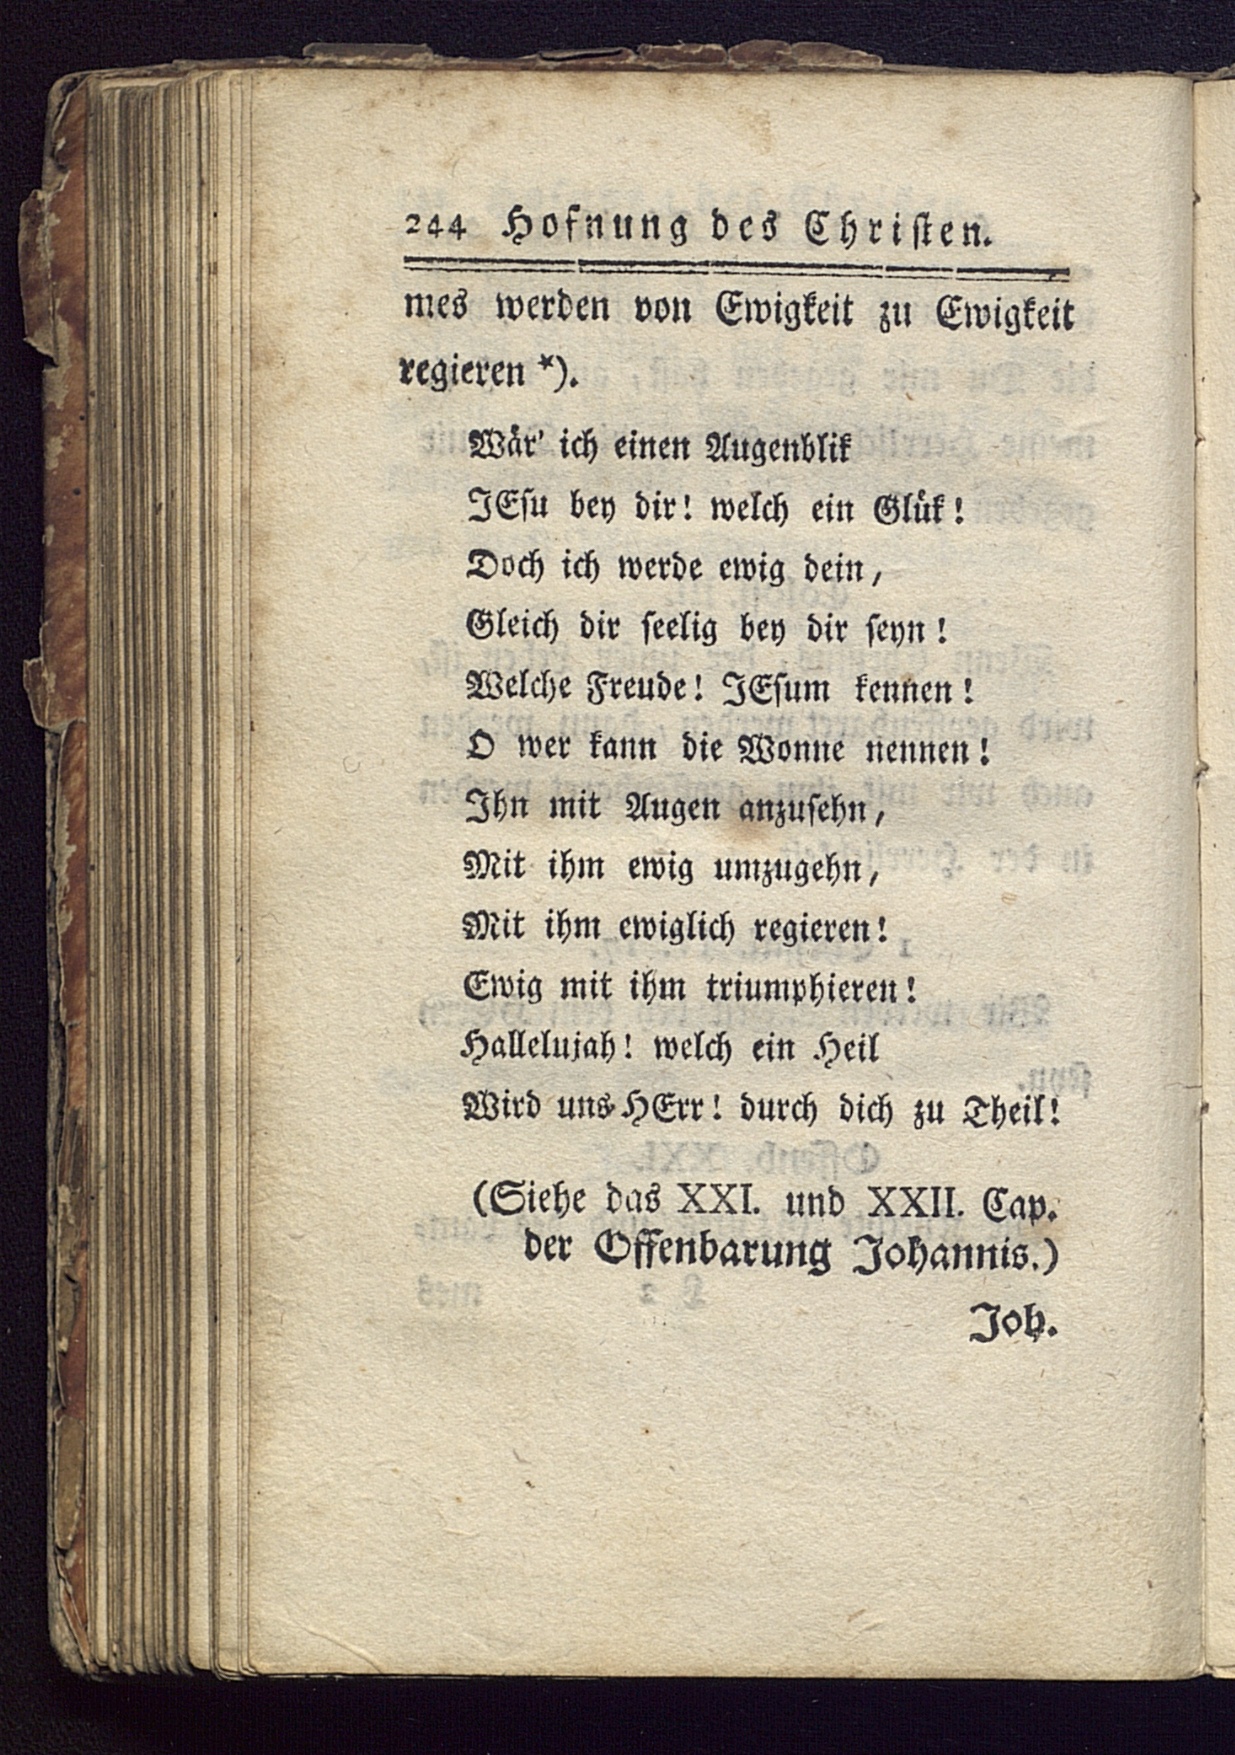 244 Hofnung des Christen.
mes werden von Ewigkeit zu Ewigkeit
regieren *).
Wär' ich einen Augenblik
JEsu bey dir! welch ein Glük!
Doch ich werde ewig dein,
Gleich dir seelig bey dir seyn!
Welche Freude! JEsum kennen!
O wer kann die Wonne nennen!
Ihn mit Augen anzusehn,
Mit ihm ewig umzugehn,
Mit ihm ewiglich regieren!
Ewig mit ihm triumphieren!
Hallelujah! welch ein Heil
Wird uns HErr! durch dich zu Theil!
(Siehe das XXI. und XXII. Cap.
der Offenbarung Johannis.)
Joh.